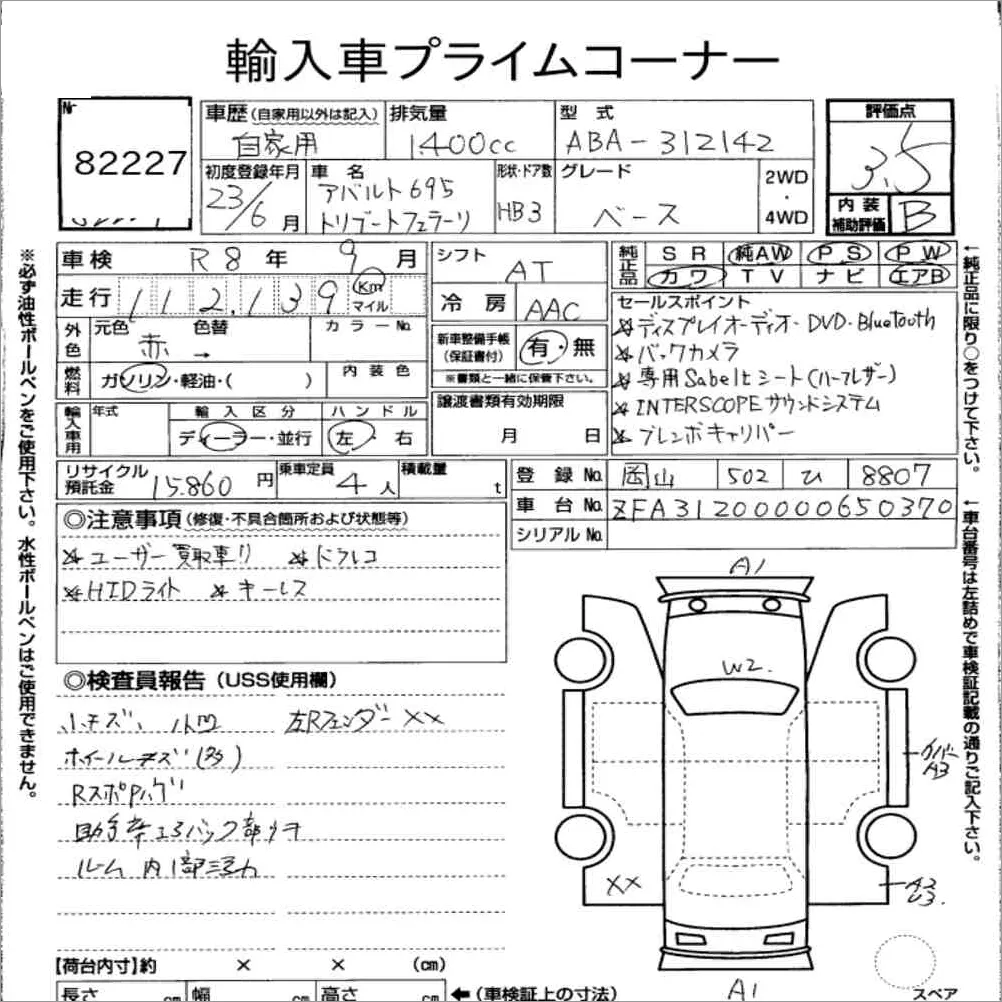 輸入車プライムコーナー
Nr
82227
車歴(自家用以外は記入)
自家用
排気量
1400cc
型 式
ABA-312142
評価点
3.5
初度登録年月
23/6月
車 名
アバルト695
トリブートフェラーリ
形状・ドア数
HB3
グレード
ベース
2WD
・
4WD
内 装
補助評価
B
車検
R8年9月
走行
112,139
Km
マイル
シフト
AT
冷 房
AAC
純正品
SR
純AW
PS
PW
カワ
TV
ナビ
エアB
外色
元色
色替
カラーNo.
赤 →
燃料
ガソリン・軽油・( )
内 装 色
新車整備手帳
(保証書付)
有・無
※書類と一緒に保管下さい。
セールスポイント
ディスプレイオーディオ・DVD・Bluetooth
バックカメラ
専用Sabeltシート(ハーフレザー)
INTERSCOPEサウンドシステム
ブレンボキャリパー
輸入車用
年式
輸 入 区 分
ディーラー・並行
ハ ン ド ル
左・右
譲渡書類有効期限
月 日
リサイクル
預託金
15.860円
乗車定員
4人
積載量
t
登 録 No.
岡山
502
ひ
8807
車 台 No.
ZFA31200000650370
シリアル No.
◎注意事項(修復・不具合箇所および状態等)
ユーザー買取車!!
ドラレコ
HIDライト
キーレス
◎検査員報告(USS使用欄)
小キズ、小凹
左Rフェンダー××
ホイールキズ(
Rスポ
助手席エアバッグ部
ルーム内
A1
W2.
カバー
A3
××
A2
U3.
A1
スペア
【荷台内寸】約 × × (㎝)
長さ ㎝
幅 ㎝
高さ ㎝
←(車検証上の寸法)
※必ず油性ボールペンをご使用下さい。水性ボールペンはご使用できません。
←純正品に限り○をつけて下さい。
←車台番号は左詰めで車検証記載の通りご記入下さい。